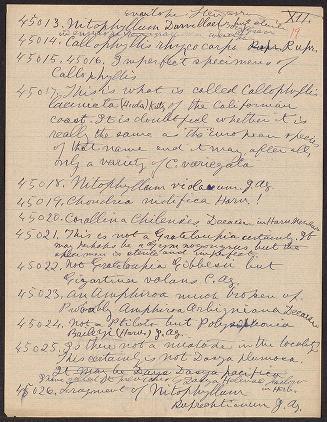 XII.
19
45013. Nitophyllum
45014. Callophyllis rhyncocarpa Rupr.
45015. 45016. Imperfect specimens of
Callophyllis
45017. This is what is called Callophyllis
laciniata (Huds) Kütz of the Californian
coast. It is doubtful whether it is
really the same as the European species
of that name and it may after all,
only a variety of C. variegata
45018. Nitophyllum violaceum J. Ag
45019. Chondria nidifica Harv!
45020. Corallina Chilensis Decaisne in Harv
45021. This is not a Grateloupia certainly. It
may perhaps be a Gymnogongrus but the
specimen is sterile and imperfect.
45022. Not Grateloupia Gibbesii but
Gigartina volans C. Ag.
45023. An Amphiroa much broken up.
Probably Amphiroa Orbigniana Decaisne
45024. Not a Ptilota but Polysiphonia
Baileyi (Harv) J. Ag.
45025. Is there not a mistake in the locality?
This certainly is not Dasya plumosa
It may be Dasya pacifica
46026. Fragment of Nitophyllum
Ruprechtianum J. Ag.